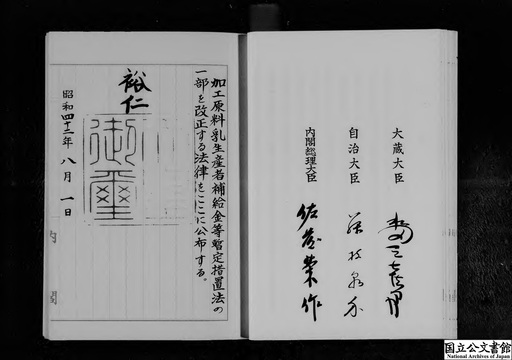 大蔵大臣 水田三喜男
自治大臣 藤枝泉介
内閣総理大臣 佐藤榮作
加工原料乳生産者補給金等暫定措置法の
一部を改正する法律をここに公布する。
裕仁
御璽
昭和四十二年八月一日
内閣
国立公文書館
National Archives of Japan